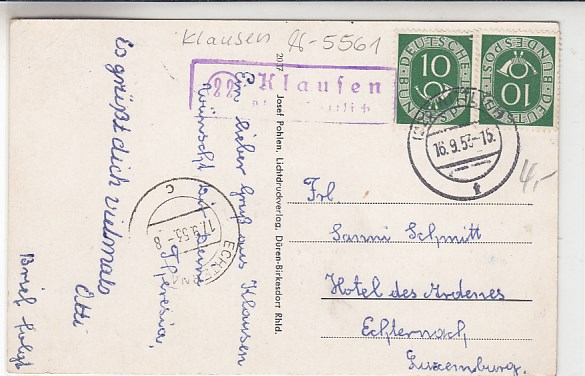 Klausen
(22) Klausen
DEUTSCHE BUNDESPOST
10
DEUTSCHE BUNDESPOST
10
16.9.53-15
f
4,-
Ein lieber Gruß aus Klausen
wünscht Dir Deine
Theresia,
Es grüßt dich vielmals
Otti
Brief folgt
ECHTERNA
17.9.53 -8
C
2037 Josef Pohlen, Lichtdruckverlag, Düren-Birkesdorf Rhld.
Frl.
Sanni Schmitt
Hotel des Ardenes
Echternach
Luxemburg.